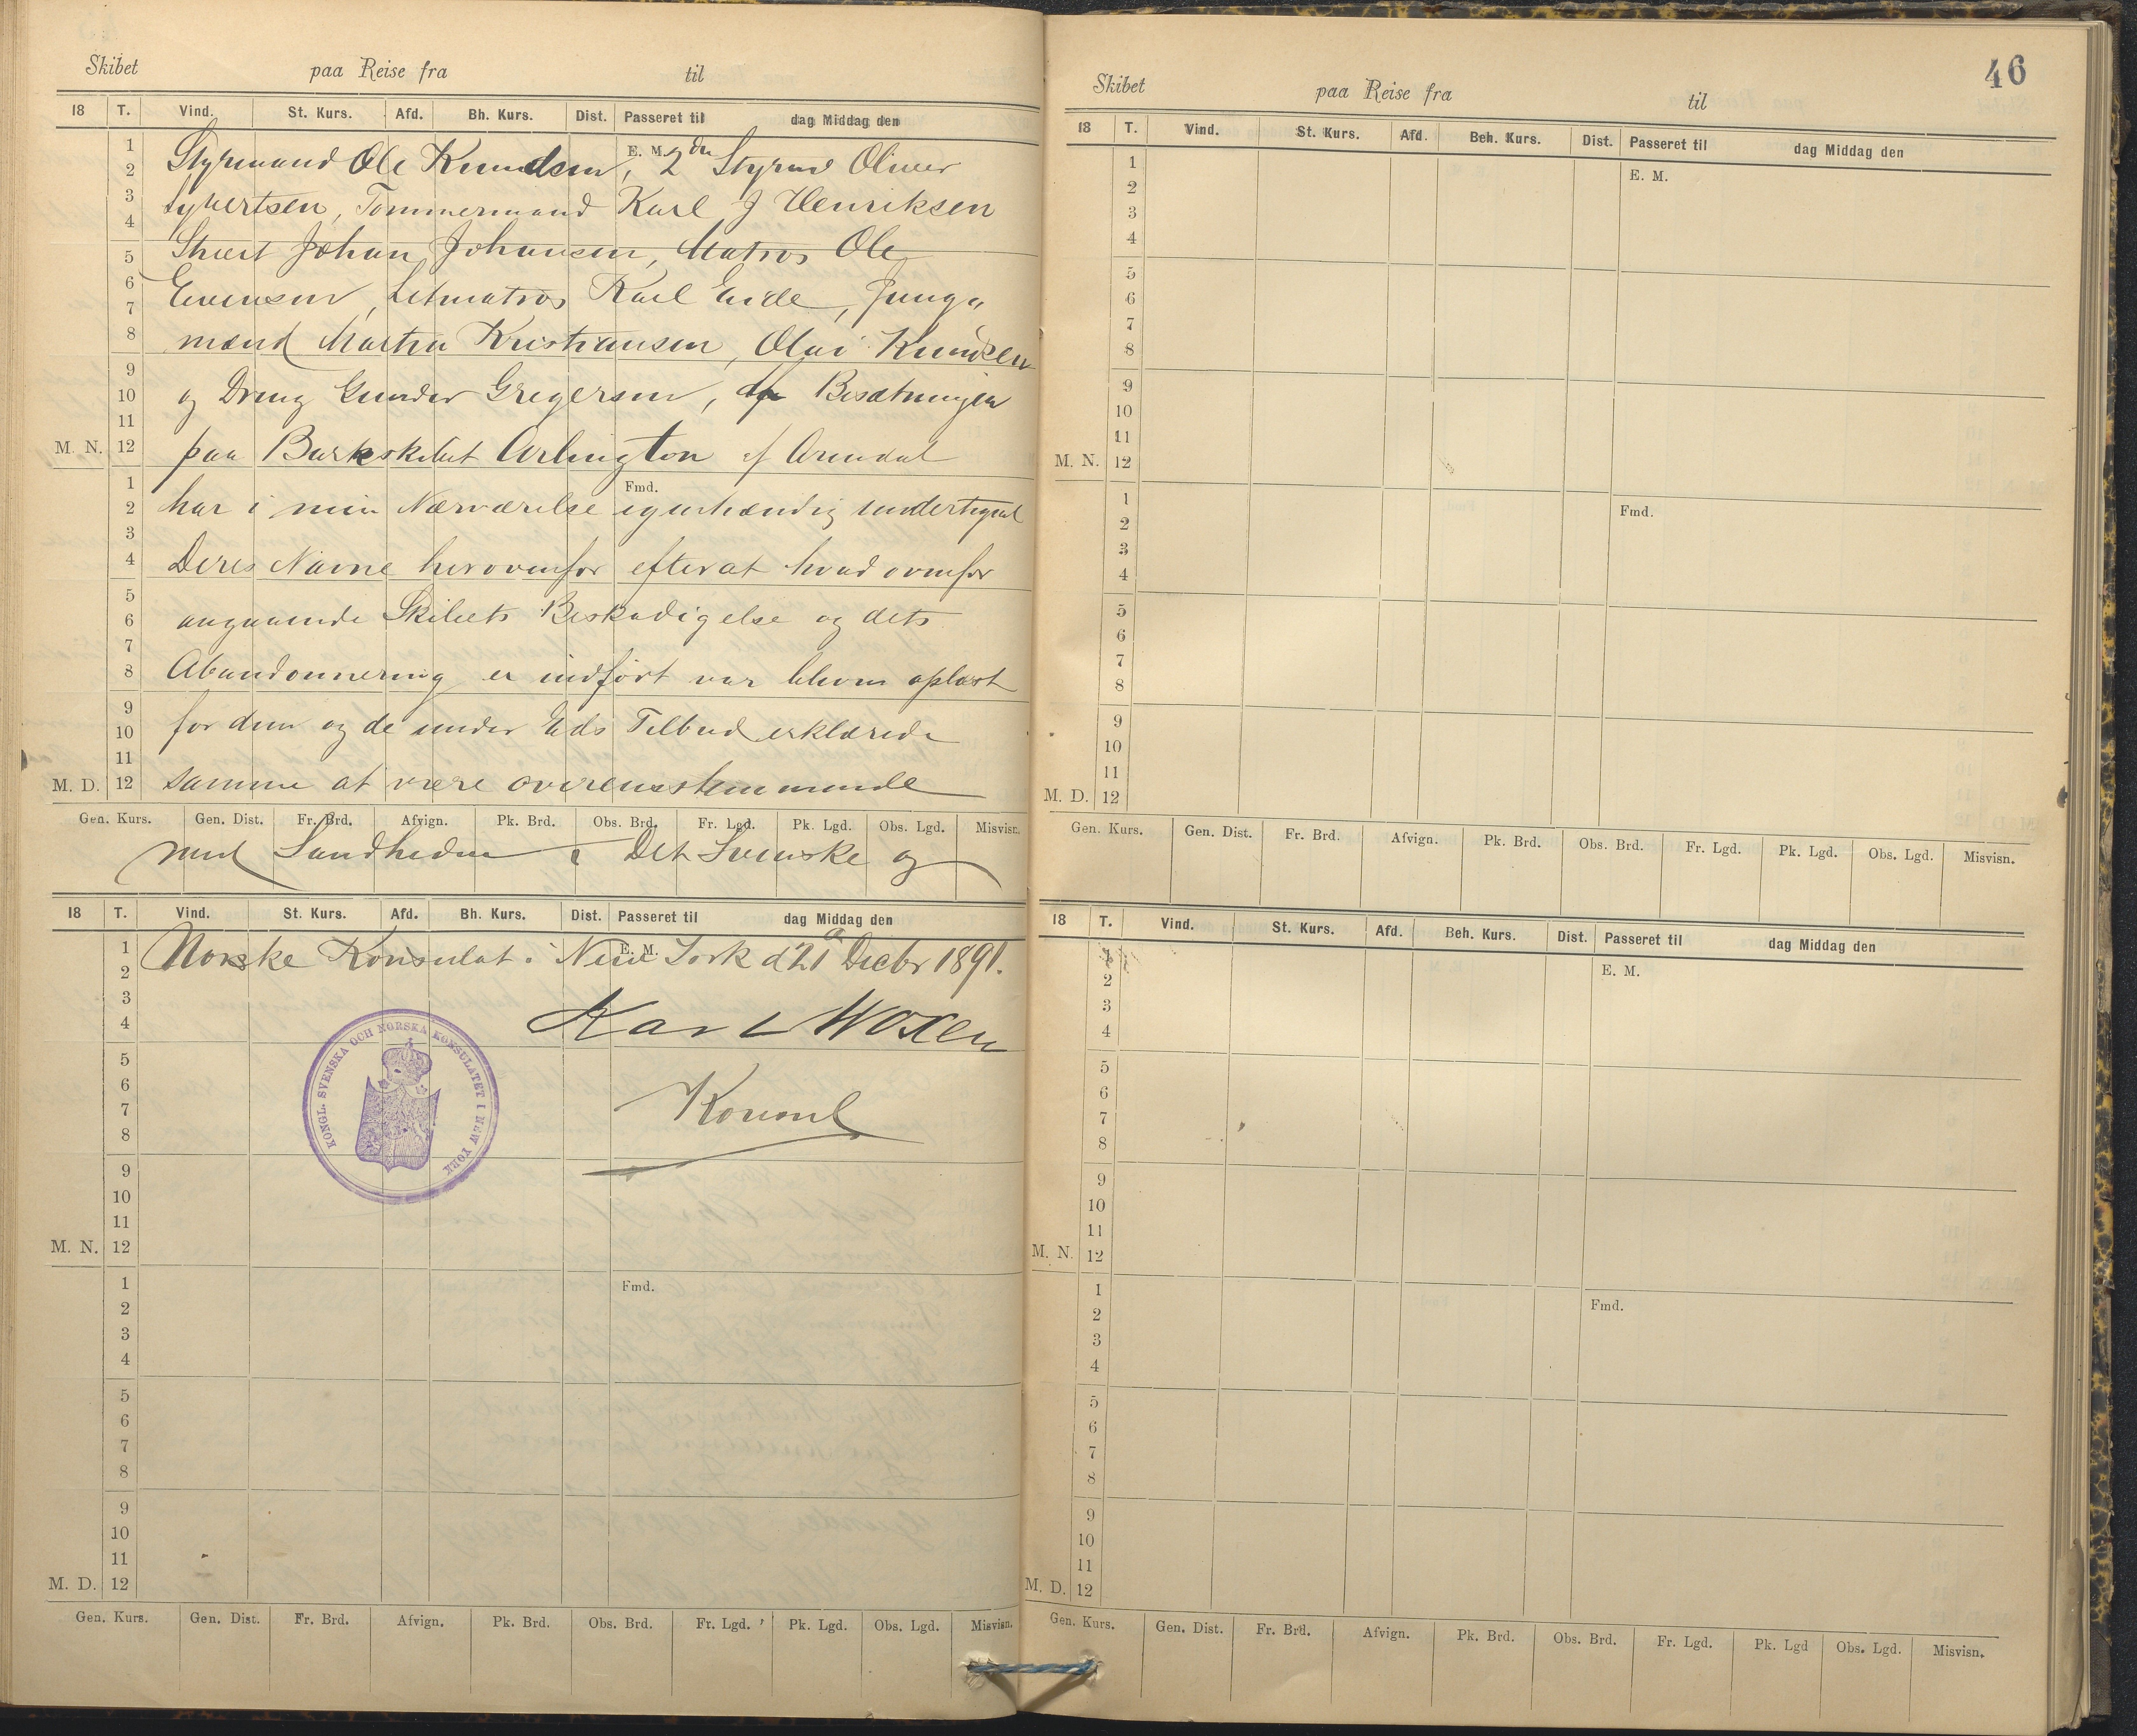 Skibet paa Reise fra til
18 T. Vind. St. Kurs. Afd. Bh. Kurs. Dist. Passeret til dag Middag den
E. M.
Styrmand Ole Knudsen, 2den Styrmd Oliver
Syvertsen, Tømmermand Karl J Henriksen
Stuert Johan Johansen, Matros Ole
Evensen, Letmatros Karl Eide, Jung-
mænd Martin Kristiansen, Olai Knudsen
og Dreng Gunder Gregersen, Besætningen
paa Barkskibet Arlington af Arendal
Fmd.
har i min Nærværelse egenhændig undertegnet
Deres Navne herovenfor efterat hvad ovenfor
angaaende Skibets Beskadigelse og dets
Abandonnering er indført var bleven oplæst
for dem og de under Eds Tilbud erklærede
samme at være overensstemmende
M. N.
M. D.
1
2
3
4
5
6
7
8
9
10
11
12
1
2
3
4
5
6
7
8
9
10
11
12
Gen. Kurs. Gen. Dist. Fr. Brd. Afvign. Pk. Brd. Obs. Brd. Fr. Lgd. Pk. Lgd. Obs. Lgd. Misvisn.
med Sandheden. Det Svenske og
18 T. Vind. St. Kurs. Afd. Bh. Kurs. Dist. Passeret til dag Middag den
E. M.
Norske Konsulat i New York d 21 Decbr 1891.
Karl Woxen
Konsul
KONGL. SVENSKA OCH NORSKA KONSULATET I NEW YORK
Fmd.
M. N.
M. D.
1
2
3
4
5
6
7
8
9
10
11
12
1
2
3
4
5
6
7
8
9
10
11
12
Gen. Kurs. Gen. Dist. Fr. Brd. Afvign. Pk. Brd. Obs. Brd. Fr. Lgd. Pk. Lgd. Obs. Lgd. Misvisn.
46
Skibet paa Reise fra til
18 T. Vind. St. Kurs. Afd. Beh. Kurs. Dist. Passeret til dag Middag den
E. M.
1
2
3
4
5
6
7
8
9
10
11
M. N. 12
1
Fmd.
2
3
4
5
6
7
8
9
10
11
M. D. 12
Gen. Kurs. Gen. Dist. Fr. Brd. Afvign. Pk. Brd. Obs. Brd. Fr. Lgd. Pk. Lgd. Obs. Lgd. Misvisn.
18 T. Vind. St. Kurs. Afd. Beh. Kurs. Dist. Passeret til dag Middag den
E. M.
1
2
3
4
5
6
7
8
9
10
11
M. N. 12
1
Fmd.
2
3
4
5
6
7
8
9
10
11
M. D. 12
Gen. Kurs. Gen. Dist. Fr. Brd. Afvign. Pk. Brd. Obs. Brd. Fr. Lgd. Pk. Lgd Obs. Lgd. Misvisn.